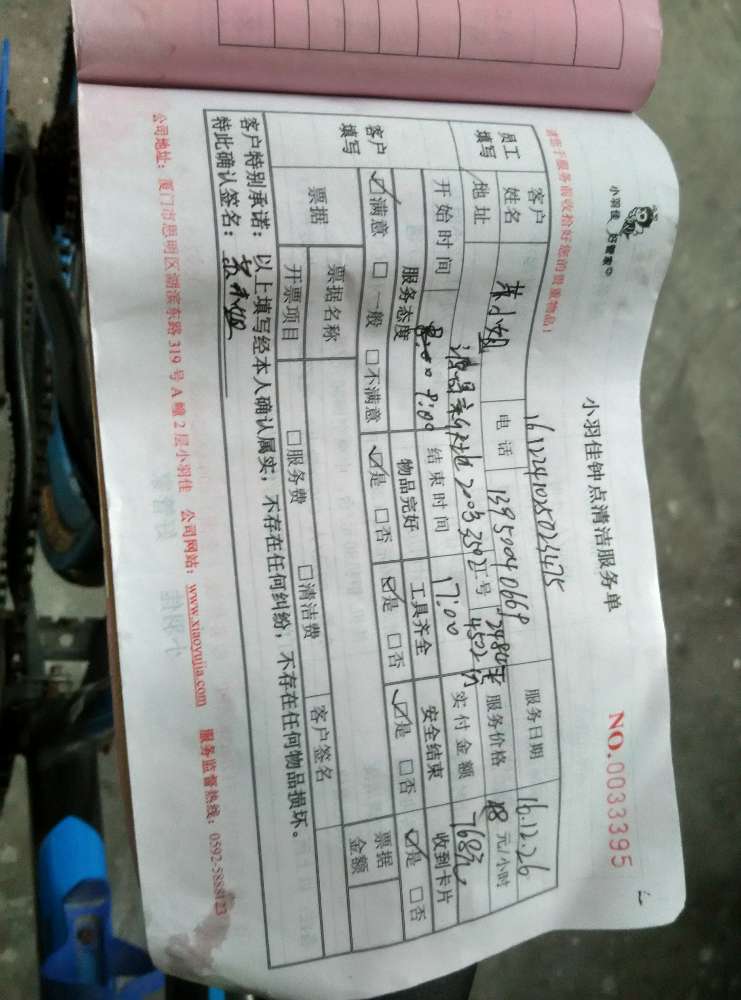 小羽佳 好管家
小羽佳钟点清洁服务单
NO.0033395
请您于服务前收拾好您的贵重物品!
员工填写
客户姓名
小姐
电话
13950040669
服务日期
16.12.26
地址
2003
2502
工号
服务价格
48元/小时
客户填写
开始时间
9:00
结束时间
17:00
实付金额
768元
服务态度
物品完好
工具齐全
安全结束
收到卡片
☑满意 □一般 □不满意
☑是 □否
☑是 □否
☑是 □否
☑是 □否
票据
票据名称
客户签名
票据金额
开票项目
□服务费 □清洁费
客户特别承诺:以上填写经本人确认属实,不存在任何纠纷,不存在任何物品损坏。
特此确认签名:
公司地址:厦门市思明区湖滨东路319号A幢2层小羽佳 公司网站:www.xiaoyujia.com 服务监督热线:0592-5888123